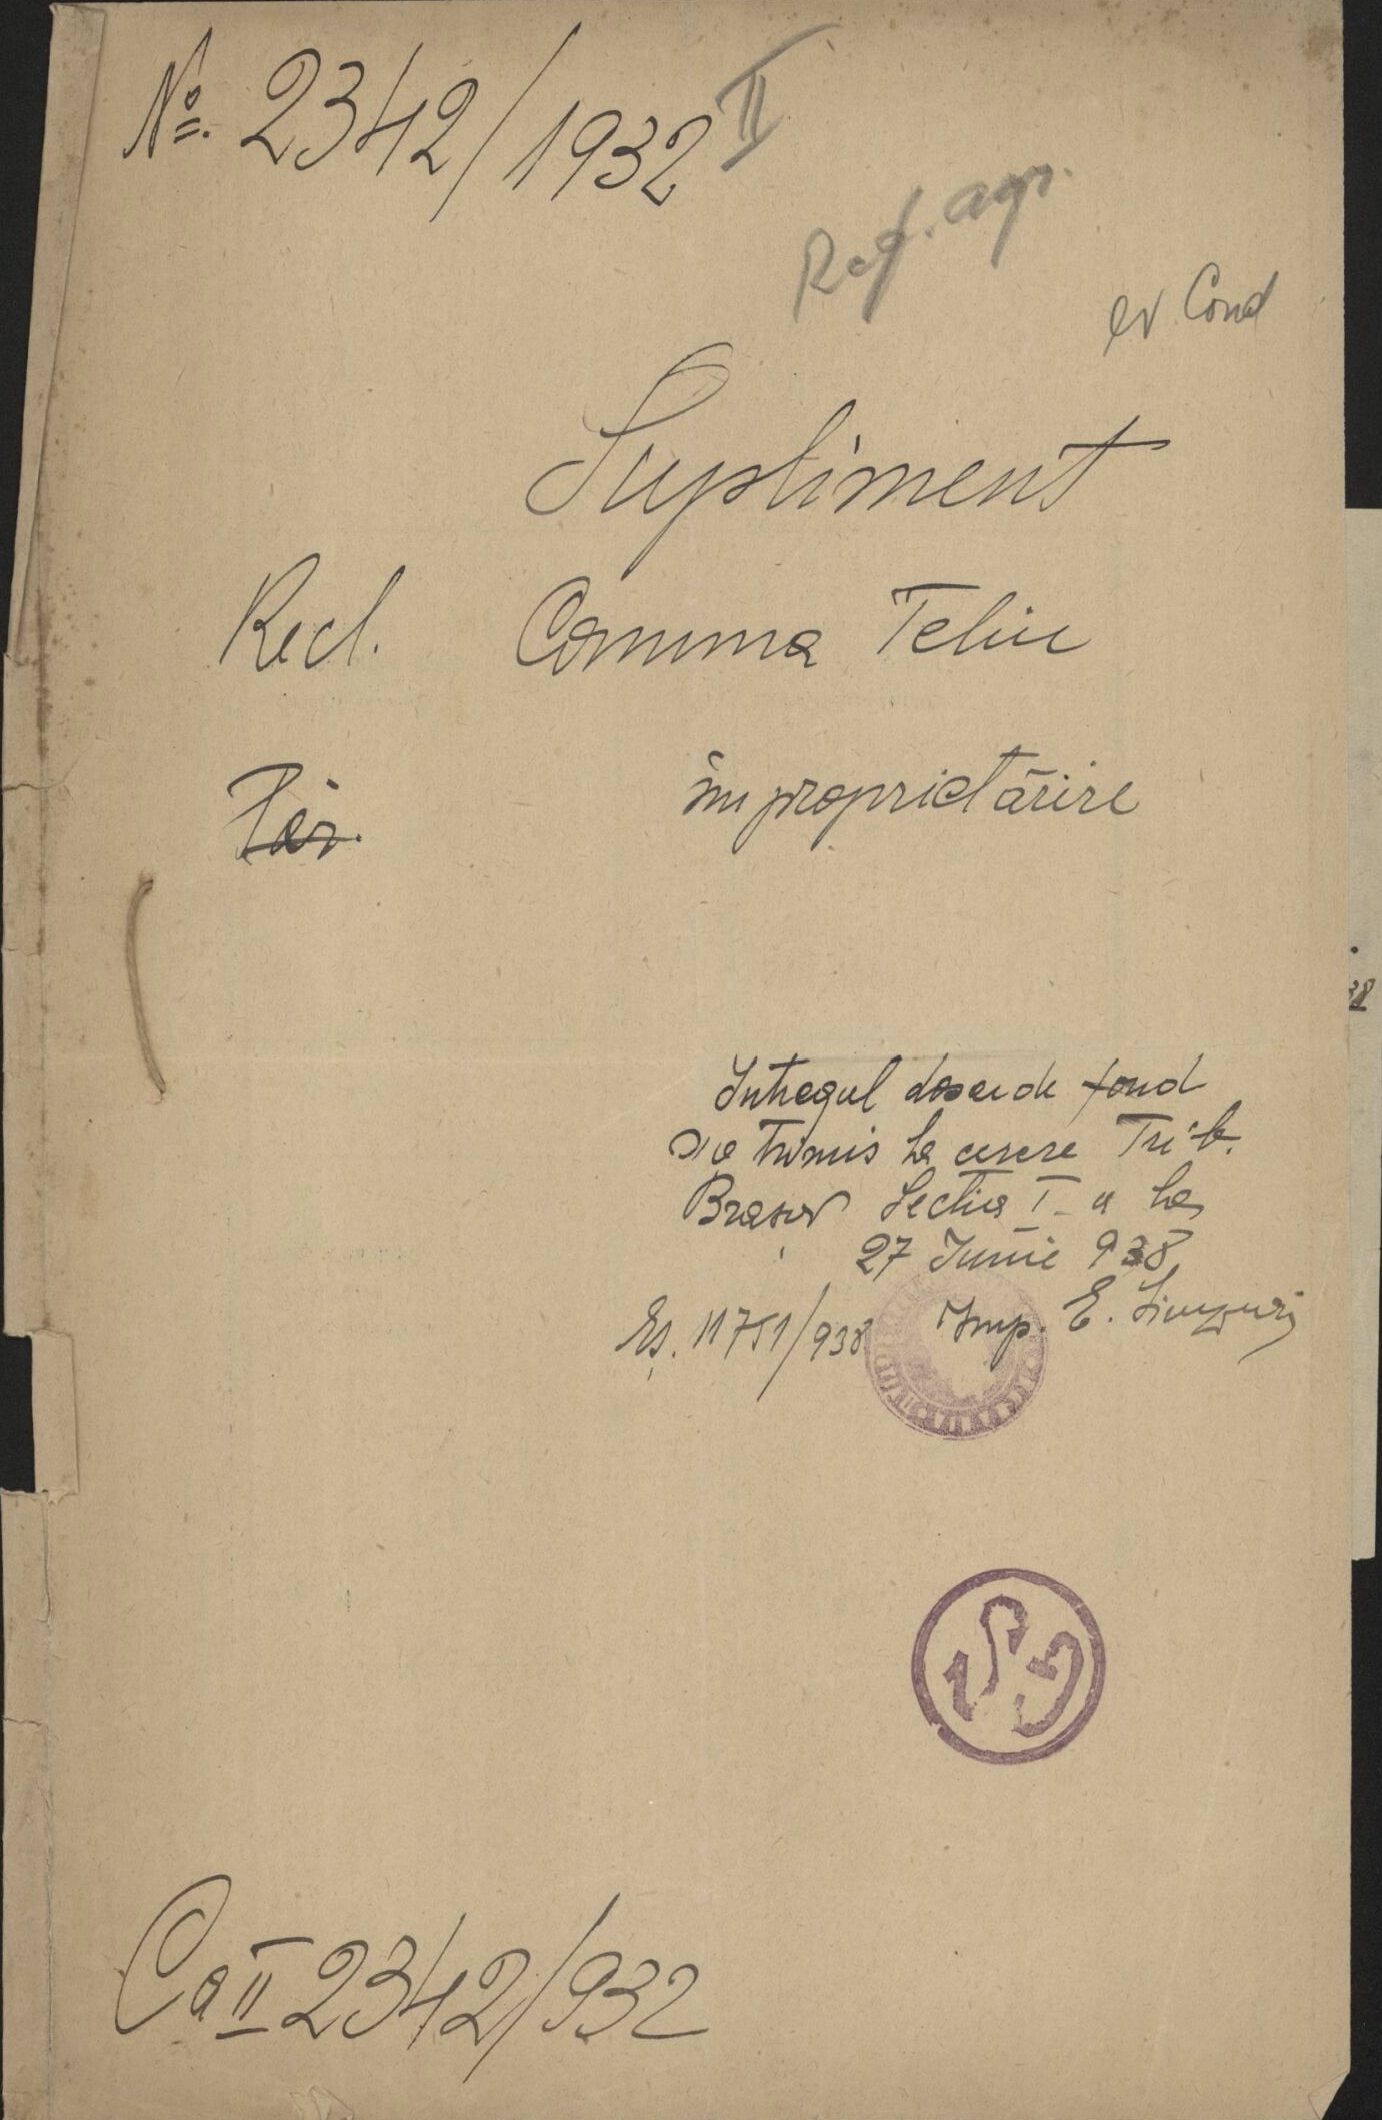 No. 2342/1932 II
Ref. agr.
ev Cond
Supliment
Recl. Comuna Teliu
Pâr. împroprietărire
Intregul dosar de fond
s'a trimis la cerere Trib.
Brașov Secția I-a la
27 Iunie 938
Eș. 11751/938 Imp. E.
Ca II 2342/932